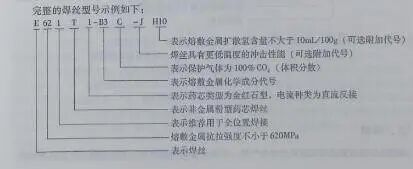 完整的焊丝型号示例如下：
E 62 1 T 1-B3 C -J H10
表示熔敷金属扩散氢含量不大于10mL/100g（可选附加代号）
焊丝具有更低温度的冲击性能（可选附加代号）
表示保护气体为100%CO₂（体积分数）
表示熔敷金属化学成分代号
表示药芯类型为金红石型，电流种类为直流反接
表示非金属粉型药芯焊丝
表示推荐用于全位置焊接
熔敷金属抗拉强度不小于620MPa
表示焊丝